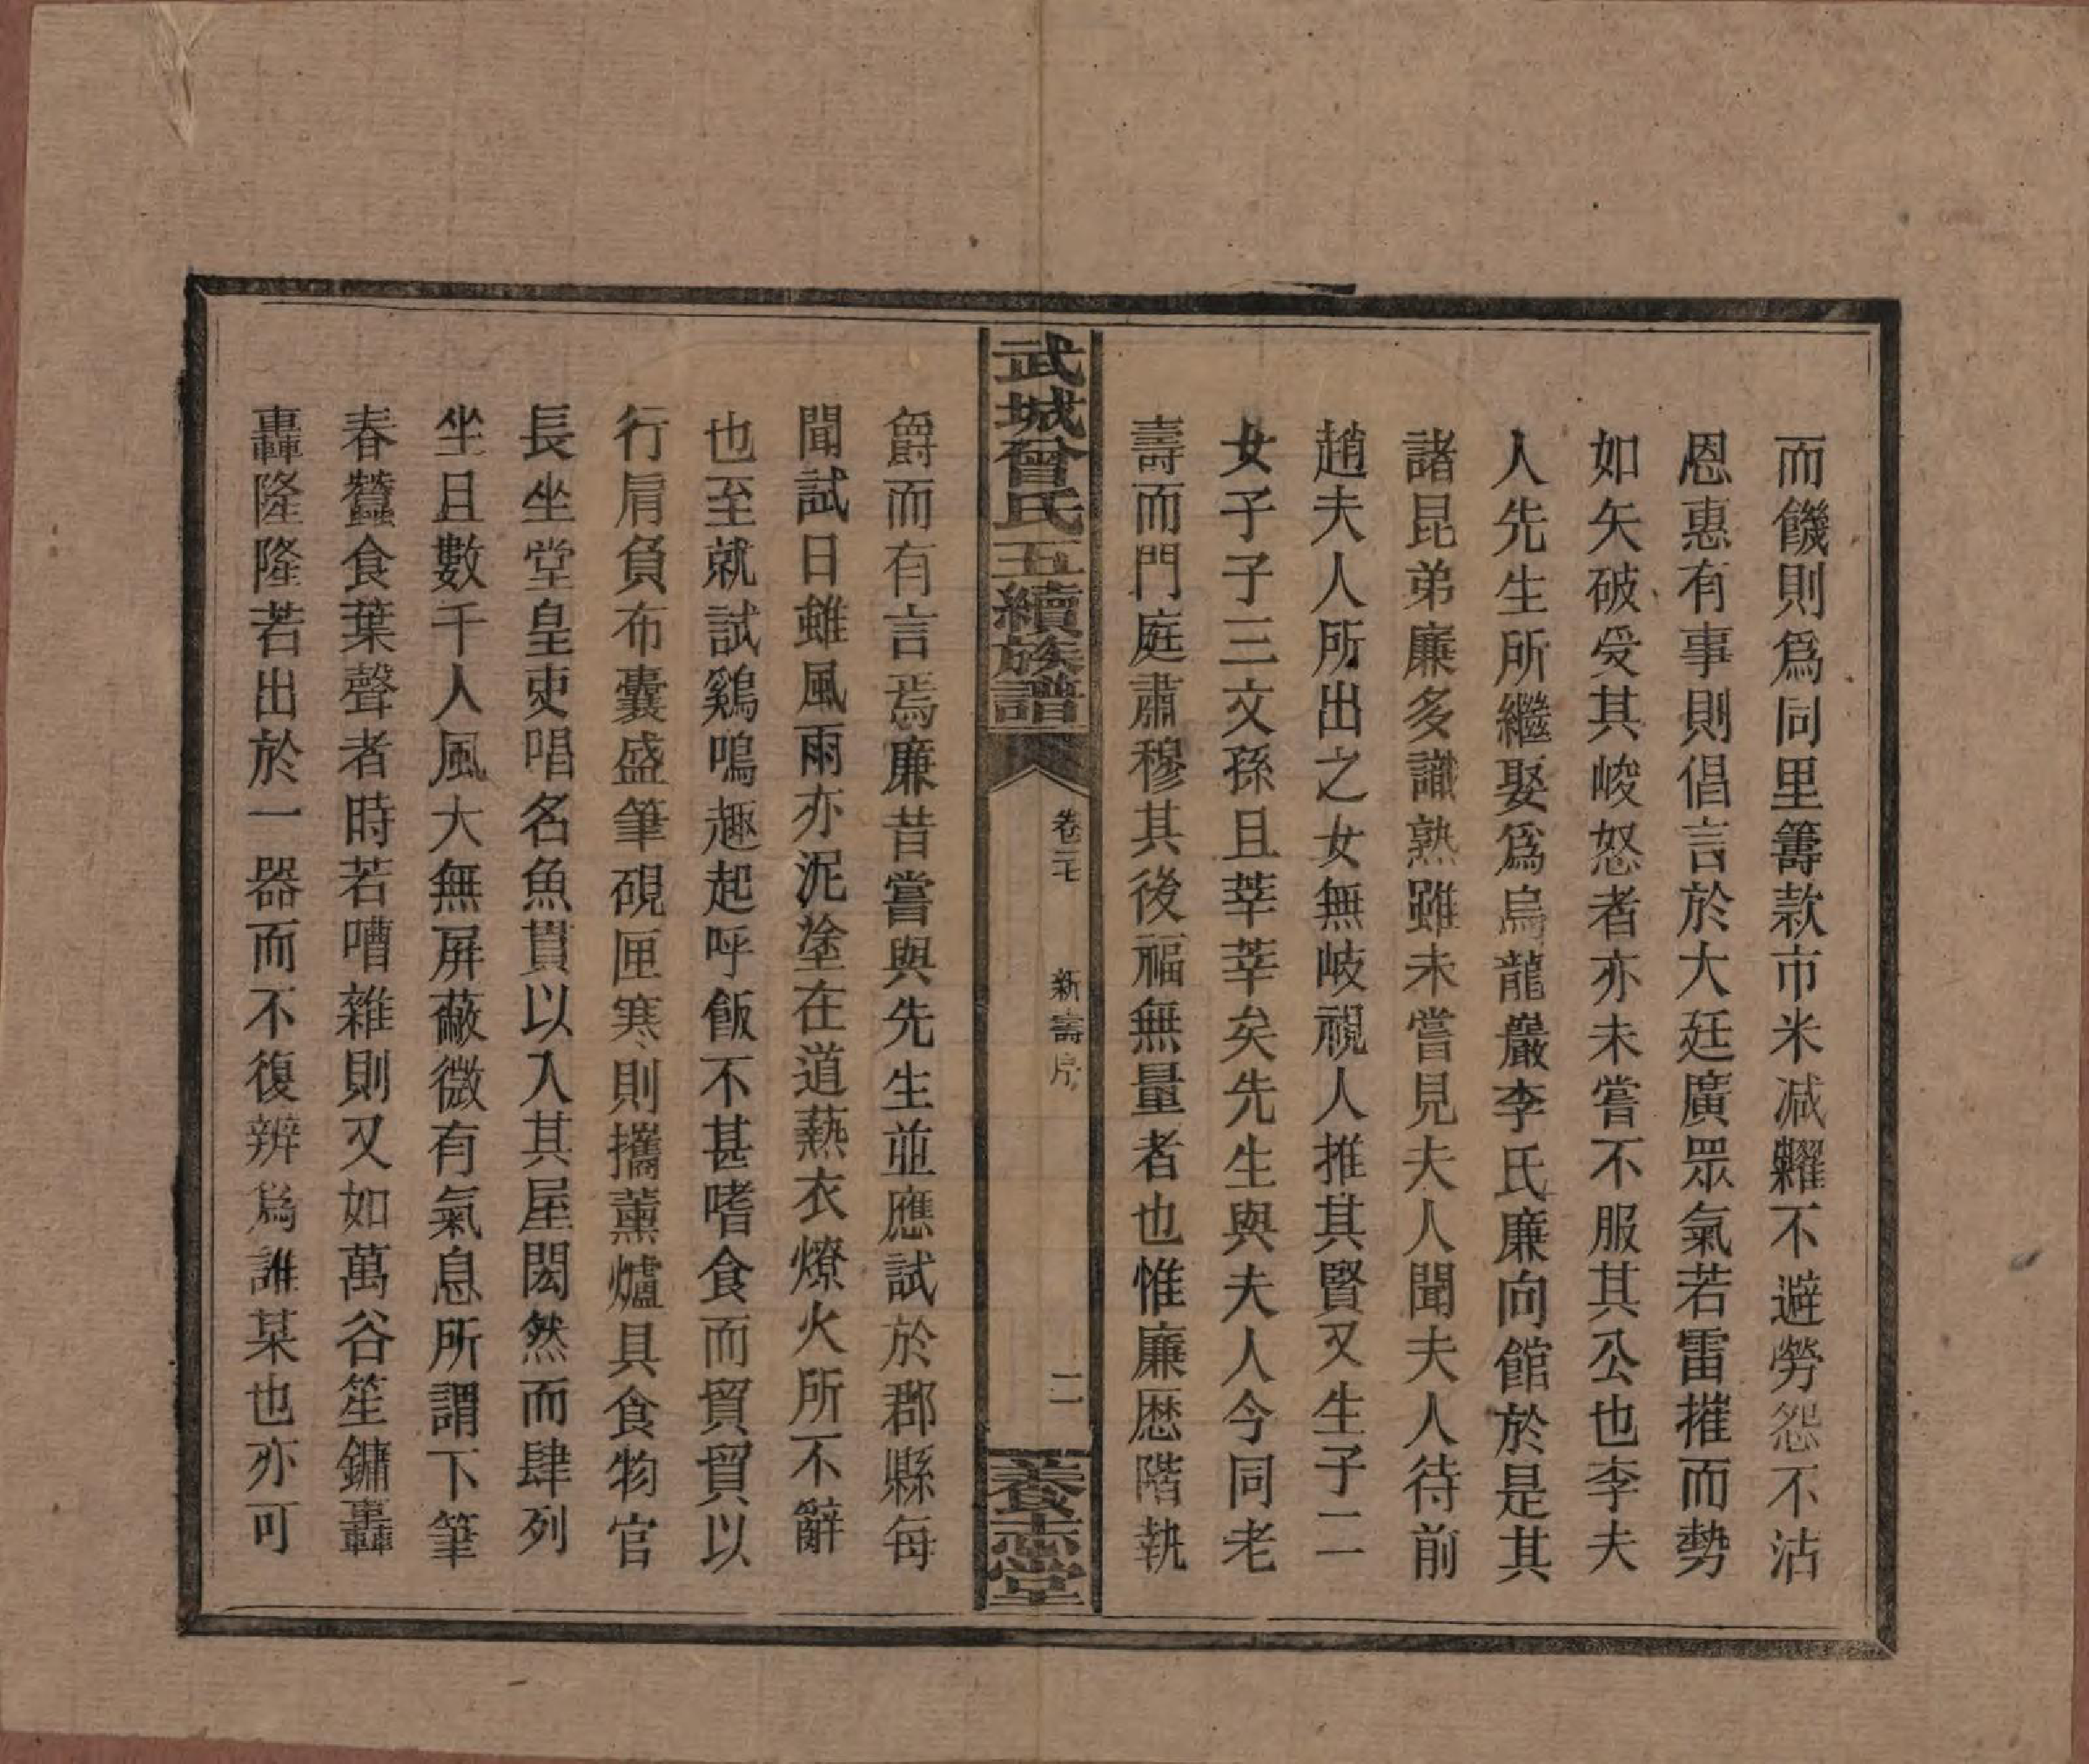 而饑則爲同里籌款市米减糶不避勞怨不沽
恩惠有事則倡言於大廷廣眾氣若雷摧而勢
如矢破受其峻怒者亦未嘗不服其公也李夫
人先生所繼娶爲烏龍巖李氏廉向館於是其
諸昆弟廉多識熟雖未嘗見夫人聞夫人待前
趙夫人所出之女無岐視人推其賢又生子二
女子子三文孫且莘莘矣先生與夫人今同老
壽而門庭肅穆其後福無量者也惟廉歷階執
武城曾氏五續族譜
卷三七
新壽序
二
養志堂
爵而有言焉廉昔嘗與先生並應試於郡縣每
聞試日雖風雨亦泥塗在道爇衣燎火所不辭
也至就試鷄鳴趣起呼飯不甚嗜食而貿貿以
行肩負布囊盛筆硯匣寒則攜薰爐具食物官
長坐堂皇吏唱名魚貫以入其屋閎然而肆列
坐且數千人風大無屏蔽微有氣息所謂下筆
春蠶食葉聲者時若嘈雜則又如萬谷笙鏞轟
轟隆隆若出於一器而不復辨爲誰某也亦可